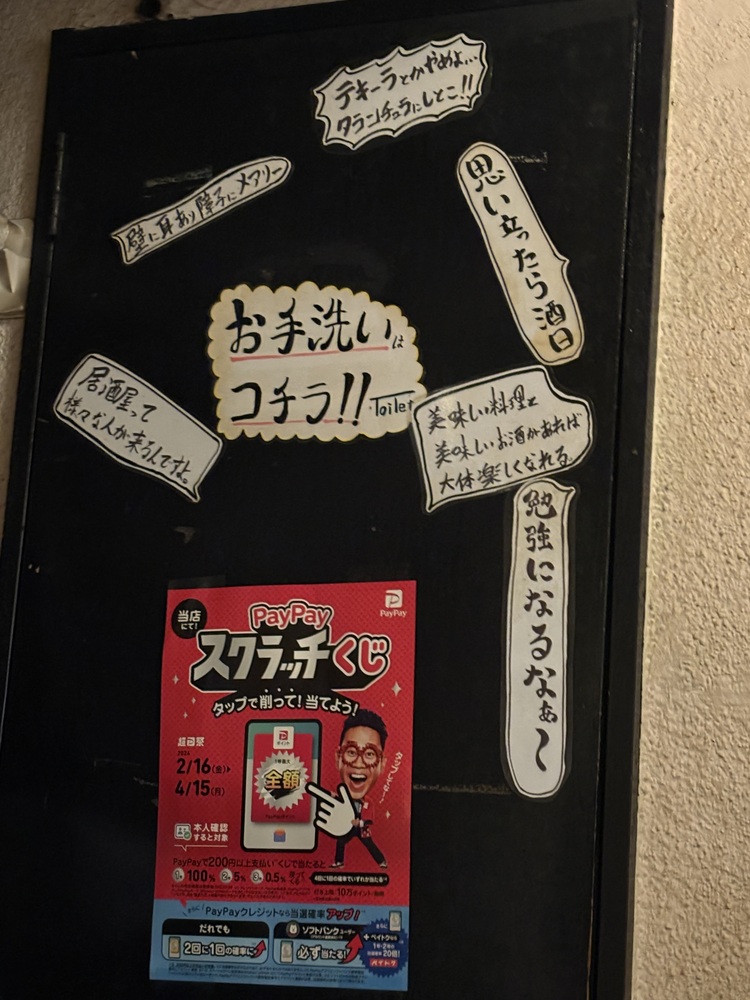 テキーラとかやめよ…
タランチュラにしとこ!!
壁に耳あり障子にメアリー
思い立ったら酒日
お手洗いは
コチラ!! Toilet
居酒屋って
様々な人が来るんですよ。
美味しい料理と
美味しいお酒があれば
大体楽しくなれる
勉強になるなぁ〜
当店
にて!
PayPay
PayPay
スクラッチくじ
タップで削って!当てよう!
超PayPay祭
2024
2/16(金)▶
4/15(月)
本人確認
すると対象
ポイント
全額
PayPayで200円以上支払い くじで当たると
1等 100% 2等 5% 3等 0.5%
4回に1回の確率でいずれか当たる
PayPayクレジットなら当選確率アップ!
だれでも
2回に1回の確率に
ソフトバンクユーザー
必ず当たる!
さらに
+ペイトクなら
1等・2等の
当選確率20倍!
ペイトク